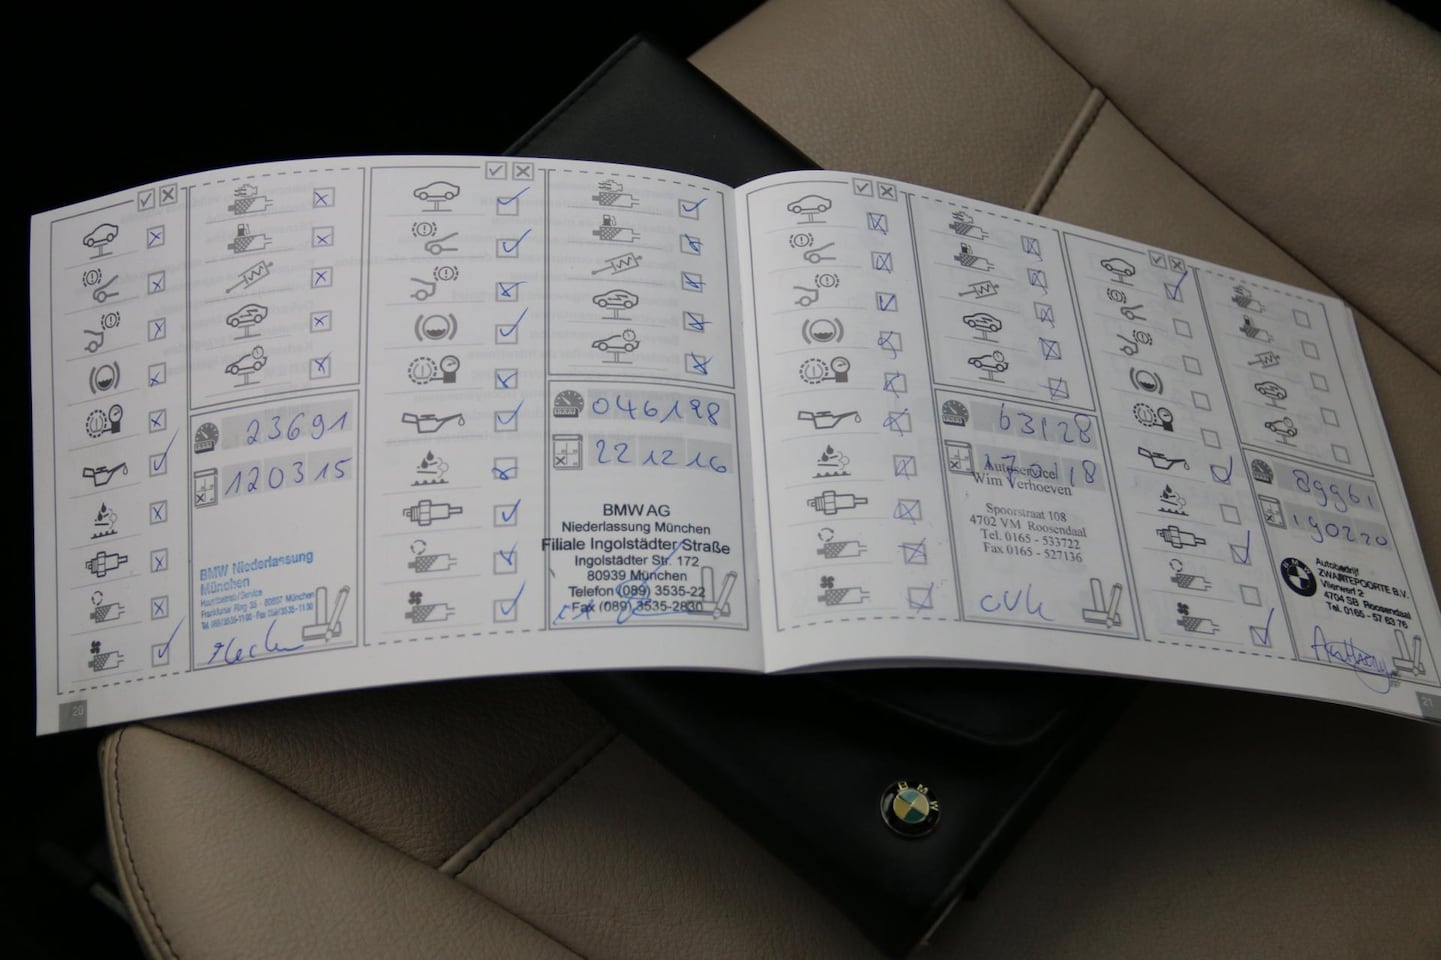 23691
120315
BMW Niederlassung
München
Frankfurter Ring 35 - 80807 München
20
046198
22 12 16
BMW AG
Niederlassung München
Filiale Ingolstädter Straße
Ingolstädter Str. 172
80939 München
Telefon (089) 3535-22
Fax (089) 3535-2830
63128
Autoservice
Wim Verhoeven
Spoorstraat 108
4702 VM Roosendaal
Tel. 0165 - 533722
Fax 0165 - 527136
89961
190220
BMW
Autobedrijf
ZWARTEPOORTE B.V.
Vlierwerf 2
4704 SB Roosendaal
Tel. 0165 - 57 63 76
21
BMW